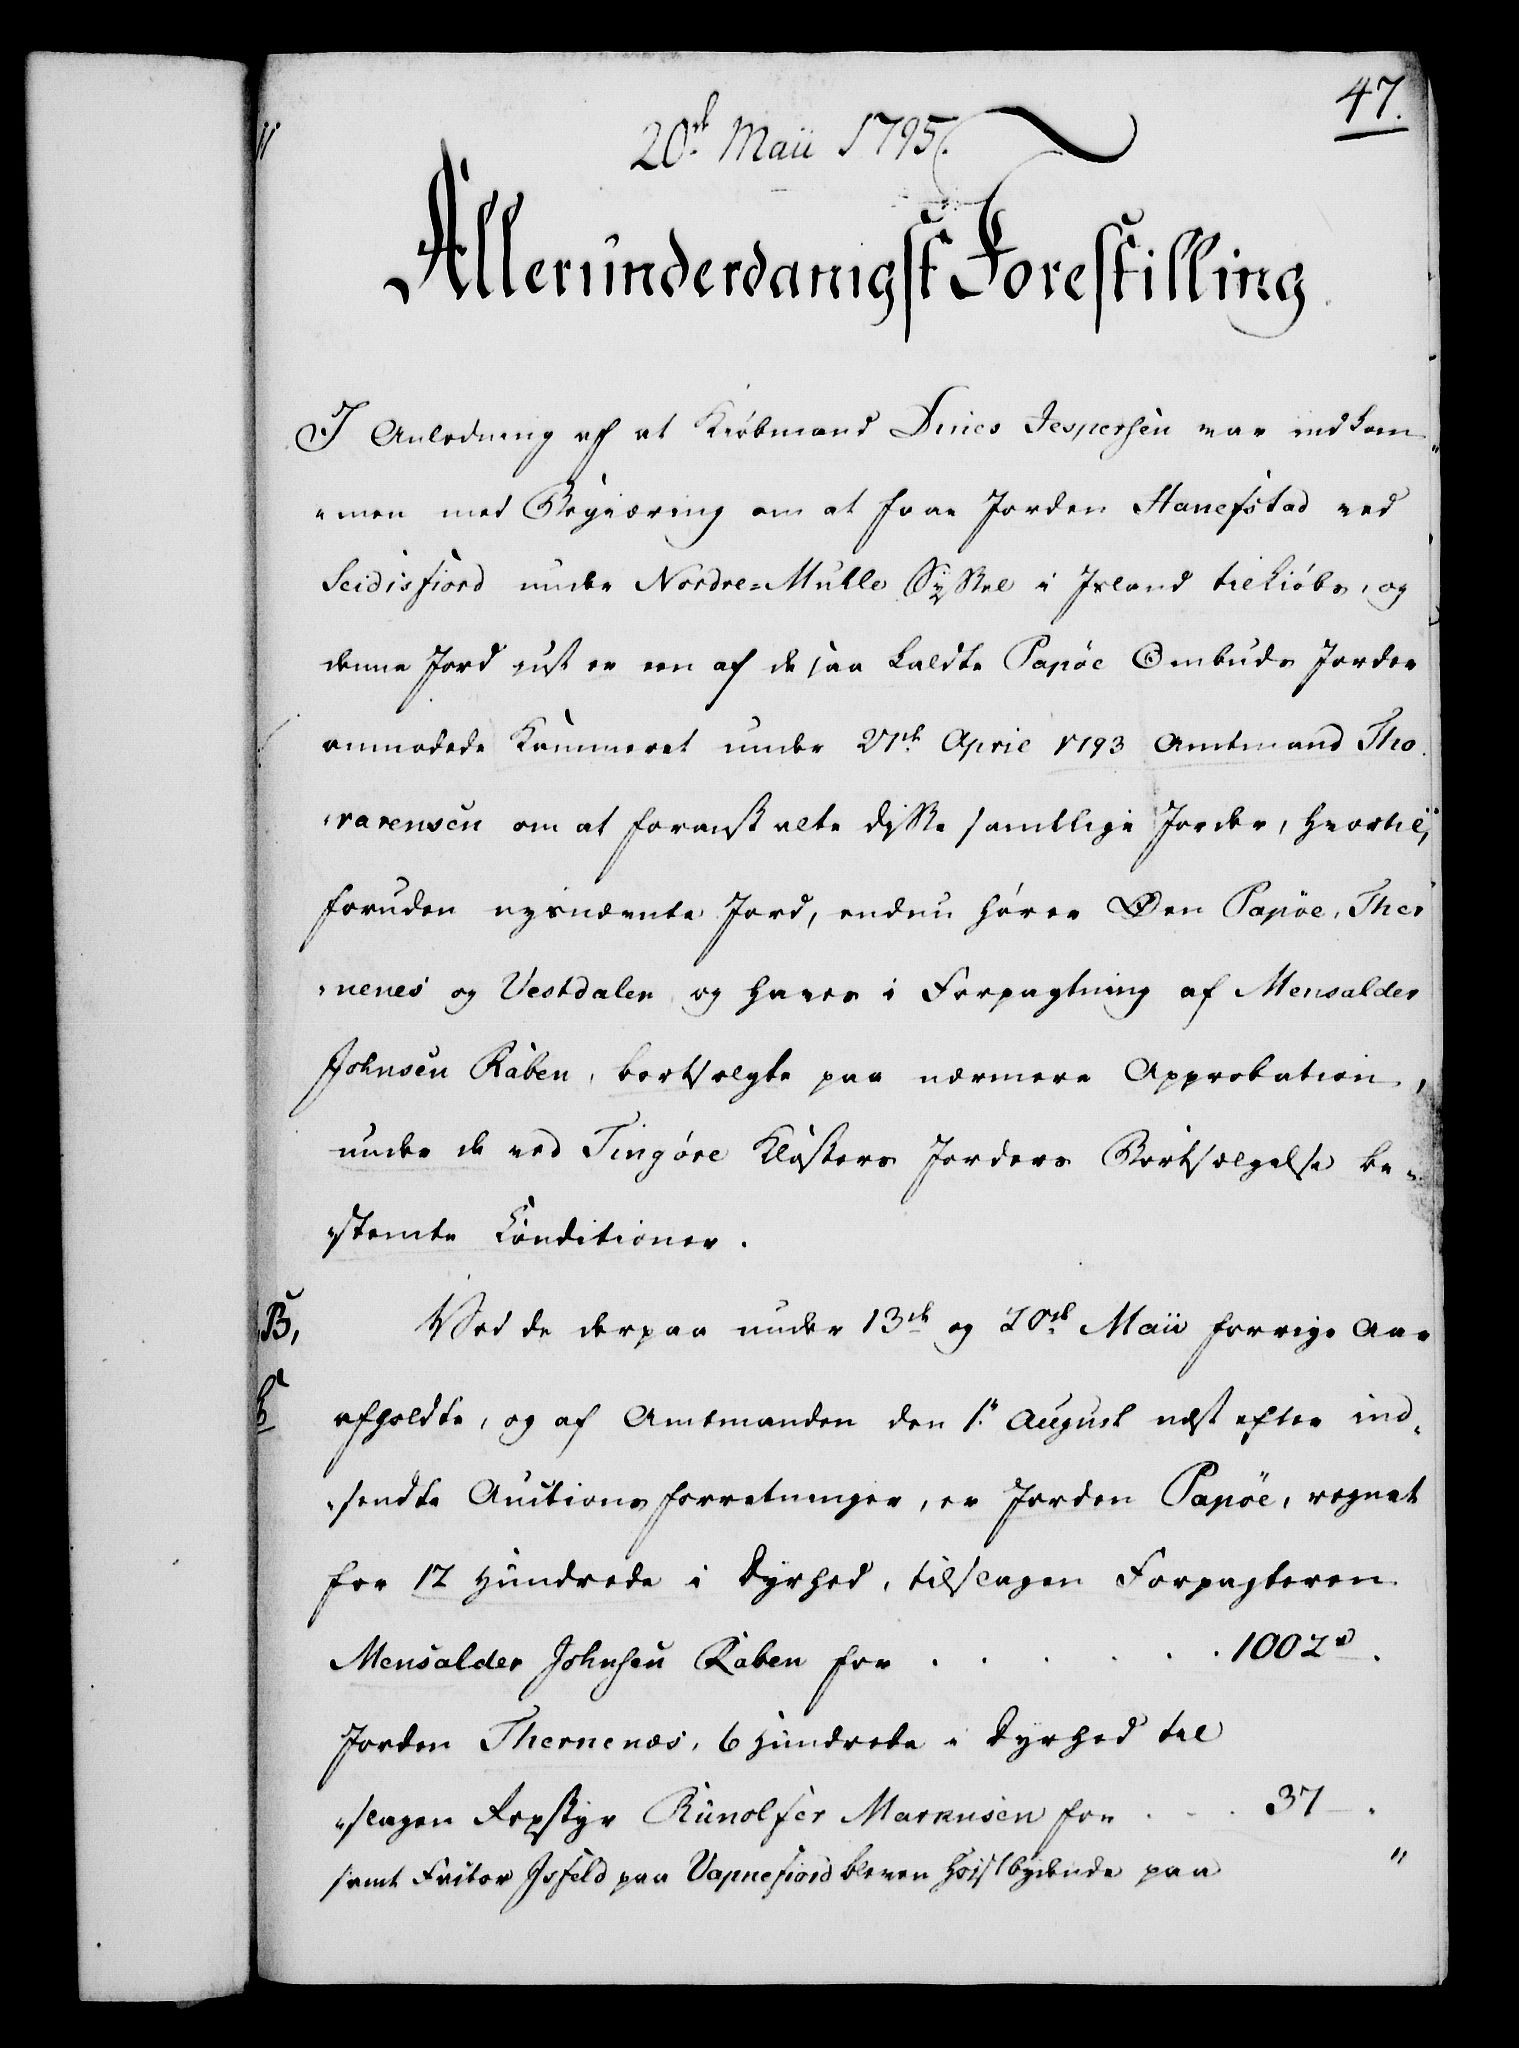 47.
20de Maii 1795.
Allerunderdanigst Forestilling
I Anledning af at Kiøbmand Dines Jespersen var indkom-
"men med Begiæring om at faae Jorden Hanefstad ved
Seidisfiord under Nordre-Muhle Syssel i Island tilkiøbs, og
denne Jord just er een af de saa kaldte Papøe Ombuds Jorder
anmodede Kammeret under 27de April 1793 Amtmand Tho
"rarensen om at foranstalte disse samtlige Jorder, hvortil,
foruden nysnævnte Jord, endnu hører Øen Papøe, Ther
"nenes og Vestdalen og haves i Forpagtning af Mensalder
Johnsen Raben, bortsolgte paa nærmere Approbation,
under de ved Tingøre Klosters Jorders Bortsælgelse be-
"stemte Conditioner.
B, Ved de derpaa under 13de og 20de Maii forrige Aar
afholdte, og af Amtmanden den 1te August næst efter ind-
"sendte Auctions forretninger, er Jorden Papöe, regnet
for 12 Hundrede i Dyrhed, tilslagen Forpagteren
Mensalder Johnsen Raben for . . . . . . 1002 rd.
Jorden Thernenæs, 6 Hundrede i Dyrhed til
"slagen Repstyr Runolfer Markusen for . . . 37 — .
samt Factor Isfeld paa Vapnefiord bleven høistbydende paa "